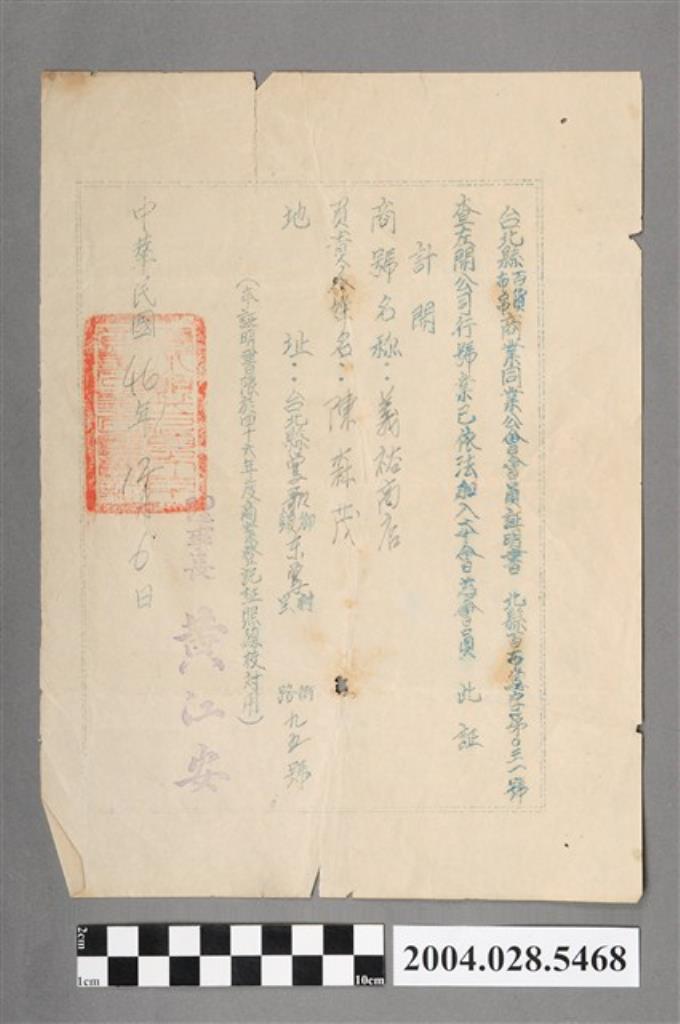 台北縣百貨布帛商業同業公會會員証明書 北縣百布 字第0三一號
查左開公司行號業已依法加入本會為會員 此証
計開
商號名稱：義裕商店
負責人姓名：陳森茂
地 址：台北縣鶯歌鄉鎮東鶯村里 街路九五號
(本証明書限於四十六年度商業登記証照總校對用)
理事長 黃江安
中華民國46年 月6日
2cm
1cm
10cm
2004.028.5468